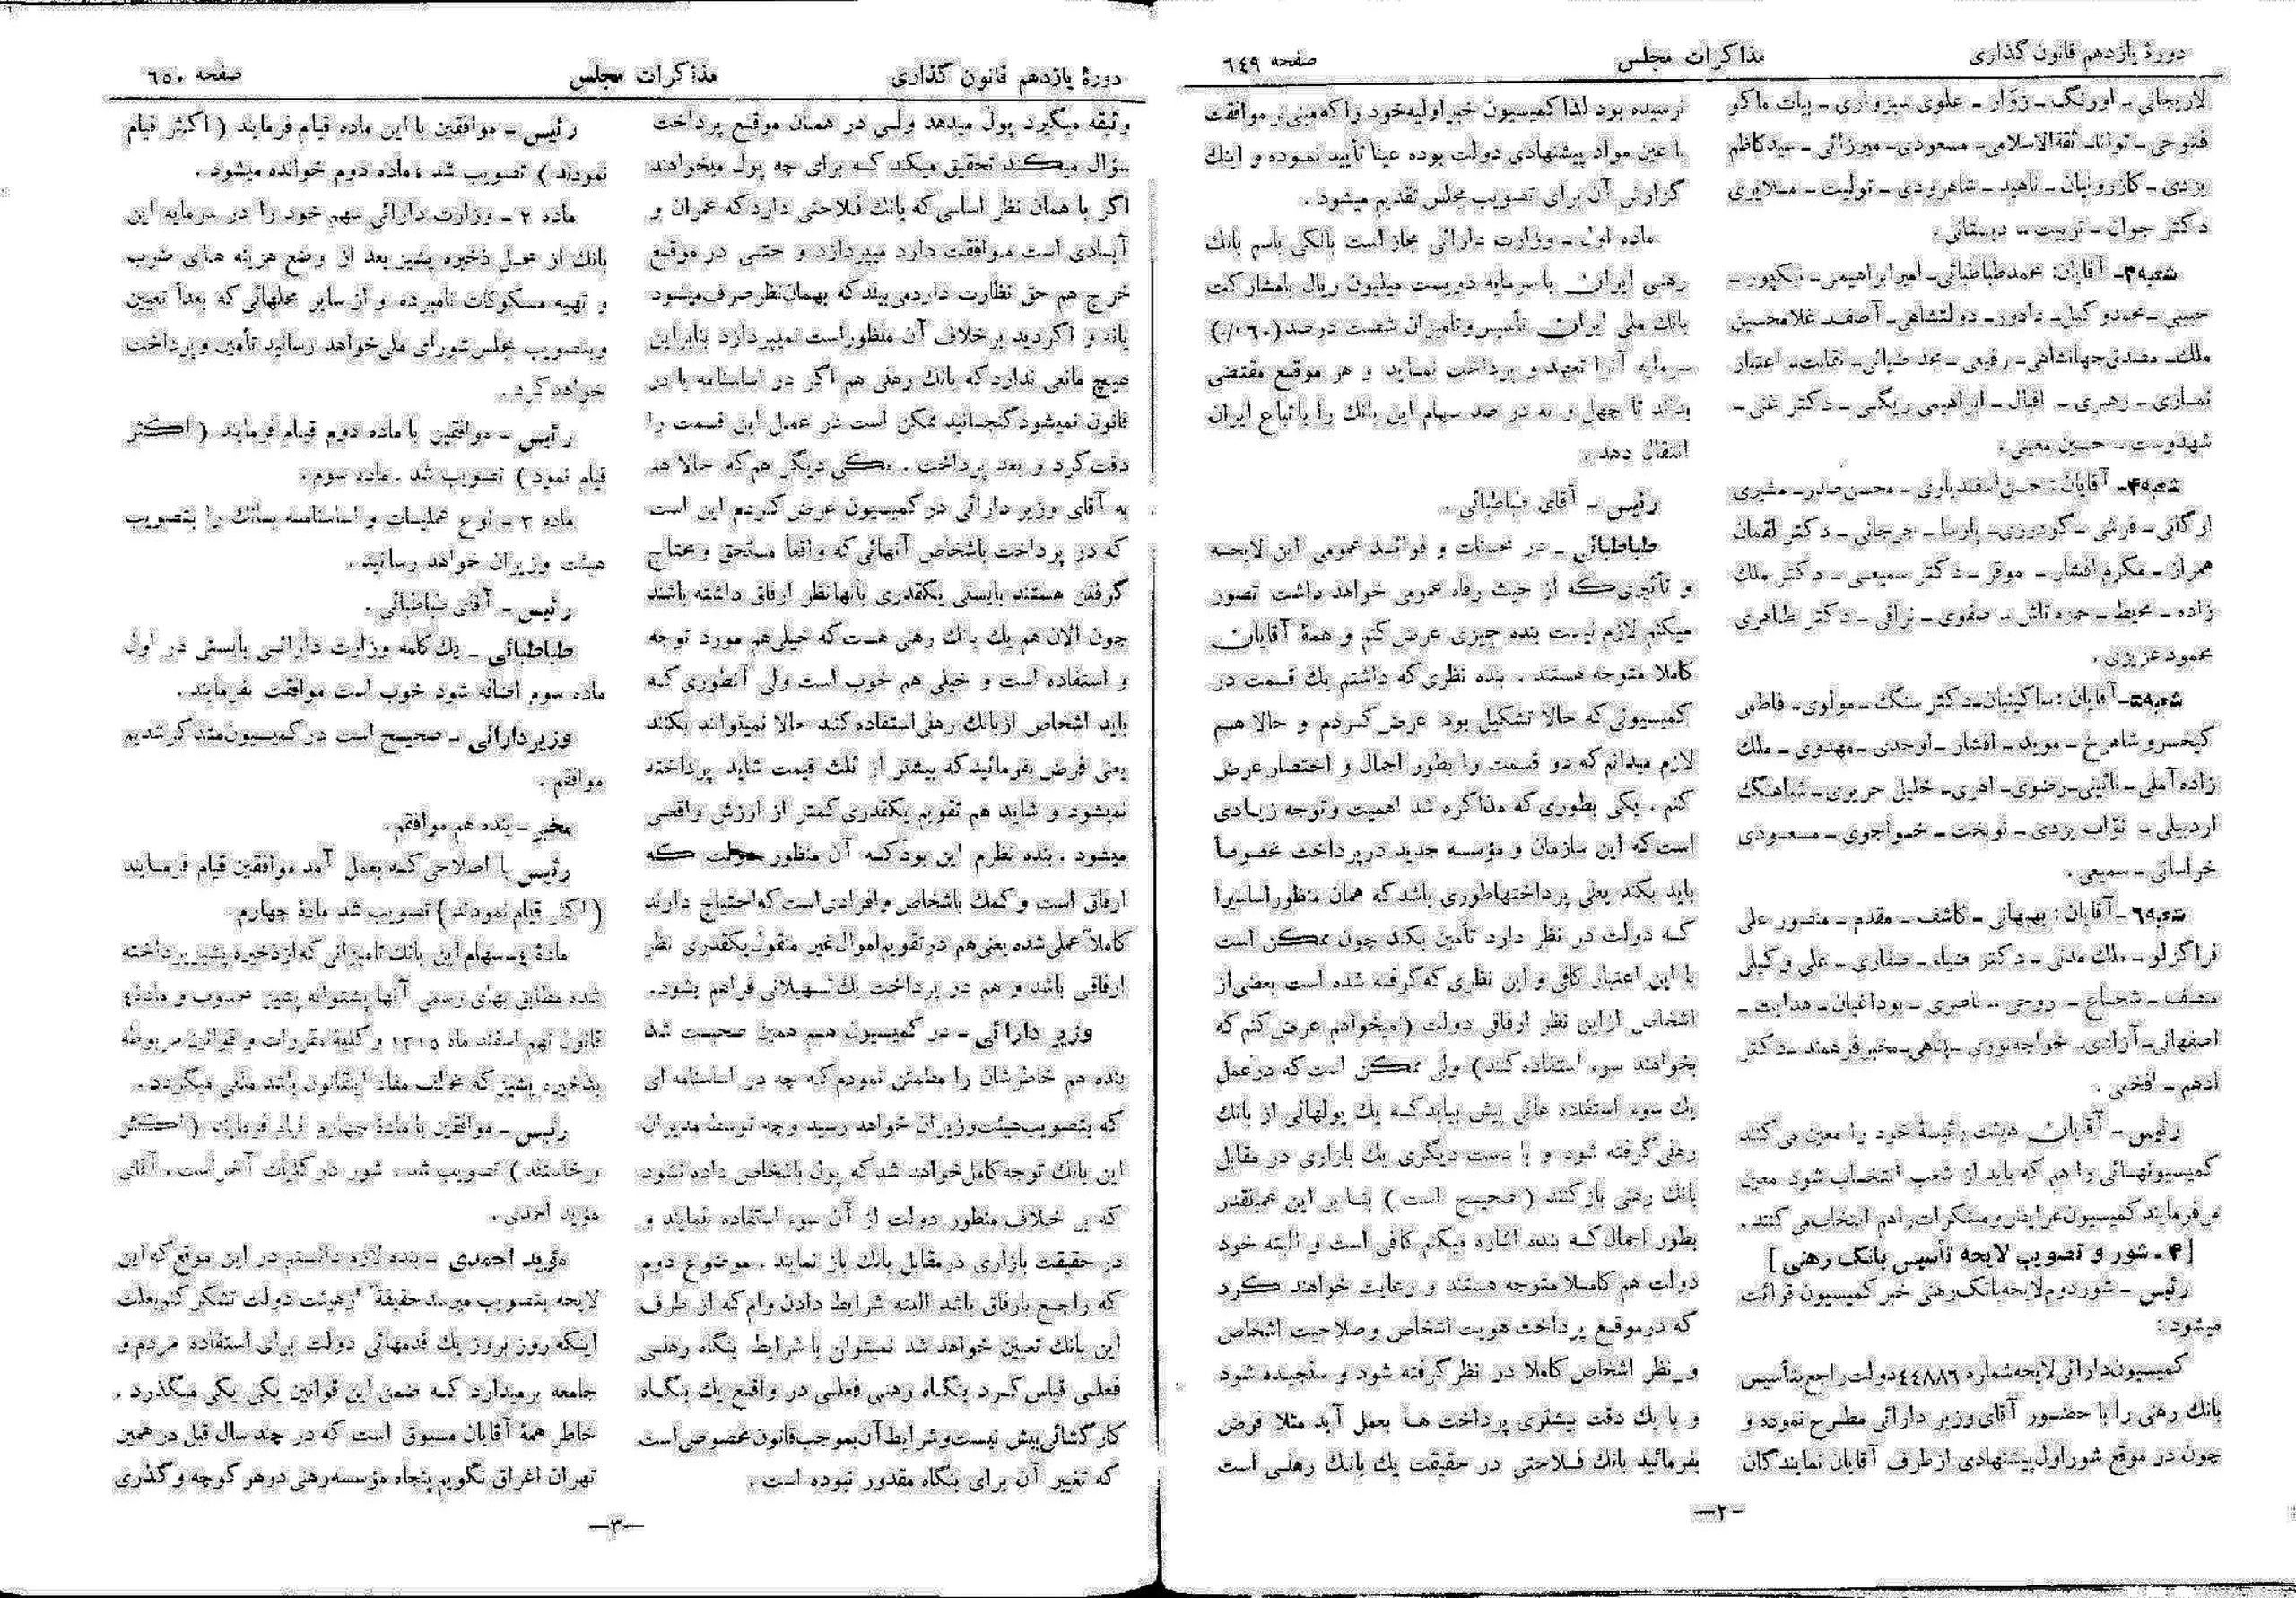 دورهٔ یازدهم قانون گذاری
مذاکرات مجلس
صفحه ٦٤٩
لاریجانی - اورنگ - زوّار - علوی سبزواری - بیات ماکو
فتوحی - توانا - ثقةالاسلامی - مسعودی - میرزائی - سیدکاظم
یزدی - کازرونیان - ناهید - شاهرودی - تولیت - ملایری
دکتر جوان - تربیت - دبستانی.
شعبه۳- آقایان: محمدطباطبائی - امیرابراهیمی - نیکپور -
حبیبی - محمدوکیل - دادور - دولتشاهی - آصف - غلامحسین
ملک - مصدق جهانشاهی - رفیعی - مجد ضیائی - نقابت - اعتبار
نمازی - رهبری - اقبال - ابراهیمی ریگی - دکتر غنی -
شهدوست - حسین معینی.
شعبه۴- آقایان: حسن اسفندیاری - محسن صدر - مشیری
ارگانی - فرشی - گودرزی - پارسا - جرجانی - دکتر لقمان
همراز - مکرم افشار - موقر - دکتر سمیعی - دکتر ملک
زاده - محیط - حمزه تاش - صفوی - نراقی - دکتر طاهری
محمود عزیزی.
شعبه۵- آقایان: ساکینیان - دکتر سنگ - مولوی - فاطمی
کیخسرو شاهرخ - موید - افشار - اوحدی - مهدوی - ملک
زاده آملی - نائینی - رضوی - اهری - خلیل حریری - شباهنگ
اردبیلی - نوّاب یزدی - نوبخت - خواجوی - مسعودی
خراسانی - سمیعی.
شعبه٦- آقایان: بهبهانی - کاشف - مقدم - منصور علی
قراگزلو - ملک مدنی - دکتر ضیاء - صفاری - علی وکیلی
منصف - شجاع - روحی - ناصری - بوداغیان - هدایت -
اصفهانی - آزادی - خواجه نوری - پناهی - مخبرفرهمند - دکتر
ادهم - افخمی.
رئیس - آقایان هیئت رئیسهٔ خود را معین می کنند
کمیسیونهائی را هم که باید از شعب انتخاب شود معین
می فرمایند کمیسیون عرایض و مبتکرات را هم انتخاب می کنند.
[۴ - شور و تصویب لایحه تأسیس بانک رهنی]
رئیس - شور دوم لایحه بانک رهنی خبر کمیسیون قرائت
میشود:
کمیسیون دارائی لایحه شماره ٤٤٨٨٦ دولت راجع بتأسیس
بانک رهنی را با حضور آقای وزیر دارائی مطرح نموده و
چون در موقع شور اول پیشنهادی از طرف آقایان نمایندگان
نرسیده بود لذا کمیسیون خبر اولیه خود را که مبنی بر موافقت
با عین مواد پیشنهادی دولت بوده عیناً تأیید نموده و اینک
گزارش آن برای تصویب مجلس تقدیم میشود.
ماده اول - وزارت دارائی مجاز است بانکی باسم بانک
رهنی ایران با سرمایه دویست میلیون ریال بامشارکت
بانک ملی ایران تأسیس و تامیزان شصت درصد (٦٠٪)
سرمایه آنرا تعهد و پرداخت نماید و هر موقع مقتضی
بداند تا چهل و نه در صد سهام این بانک را باتباع ایران
انتقال دهد.
رئیس - آقای طباطبائی.
طباطبائی - در محسنات و فوائد عمومی این لایحه
و تأثیری که از حیث رفاه عمومی خواهد داشت تصور
میکنم لازم نیست بنده چیزی عرض کنم و همهٔ آقایان
کاملا متوجه هستند. بنده نظری که داشتم یک قسمت در
کمیسیونی که حالا تشکیل بود عرض کردم و حالا هم
لازم میدانم که دو قسمت را بطور اجمال و اختصار عرض
کنم. یکی بطوری که مذاکره شد اهمیت و توجه زیادی
است که این سازمان و مؤسسه جدید در پرداخت مخصوصاً
باید بکند یعنی پرداختها طوری باشد که همان منظور اساسیرا
که دولت در نظر دارد تأمین بکند چون ممکن است
با این اعتبار کافی و این نظری که گرفته شده است بعضی از
اشخاص از این نظر ارفاقی دولت (نمیخواهم عرض کنم که
بخواهند سوء استفاده کنند) ولی ممکن است که در عمل
یک سوء استفاده هائی پیش بیاید که یک پولهائی از بانک
رهنی گرفته شود و با دست دیگری یک بازاری در مقابل
بانک رهنی باز کنند (صحیح است) بنا بر این همینقدر
بطور اجمال که بنده اشاره میکنم کافی است و البته خود
دولت هم کاملا متوجه هستند و رعایت خواهند کرد
که در موقع پرداخت هویت اشخاص و صلاحیت اشخاص
و نظر اشخاص کاملا در نظر گرفته شود و سنجیده شود
و با یک دقت بیشتری پرداخت ها بعمل آید مثلا فرض
بفرمائید بانک فلاحتی در حقیقت یک بانک رهنی است
-۲-
دورهٔ یازدهم قانون گذاری
مذاکرات مجلس
صفحه ٦٥٠
وثیقه میگیرد پول میدهد ولی در همان موقع پرداخت
سؤال میکند تحقیق میکند که برای چه پول میخواهند
اگر با همان نظر اساسی که بانک فلاحتی دارد که عمران و
آبادی است موافقت دارد میپردازد و حتی در موقع
خرج هم حق نظارت دارد می بیند که بهمان نظر صرف میشود
یانه و اگر دید برخلاف آن منظور است نمیپردازد بنابراین
هیچ مانعی ندارد که بانک رهنی هم اگر در اساسنامه یا در
قانون نمیشود گنجانید ممکن است در عمل این قسمت را
دقت کرد و بعد پرداخت. یکی دیگر هم که حالا هم
به آقای وزیر دارائی در کمیسیون عرض کردم این است
که در پرداخت باشخاص آنهائی که واقعاً مستحق و محتاج
گرفتن هستند بایستی یکقدری بآنها نظر ارفاق داشته باشند
چون الان هم یک بانک رهنی هست که خیلی هم مورد توجه
و استفاده است و خیلی هم خوب است ولی آنطوری که
باید اشخاص از بانک رهنی استفاده کنند حالا نمیتوانند بکنند
یعنی فرض بفرمائید که بیشتر از ثلث قیمت شاید پرداخته
نمیشود و شاید هم تقویم یکقدری کمتر از ارزش واقعی
میشود. بنده نظرم این بود که آن منظور دولت که
ارفاق است و کمک باشخاص و افرادی است که احتیاج دارند
کاملاً عملی شده یعنی هم در تقویم اموال غیر منقول یکقدری نظر
ارفاقی باشد و هم در پرداخت یک تسهیلاتی فراهم بشود.
وزیر دارائی - در کمیسیون هم همین صحبت شد
بنده هم خاطرشان را مطمئن نمودم که چه در اساسنامه ای
که بتصویب هیئت وزیران خواهد رسید و چه توسط مدیران
این بانک توجه کامل خواهد شد که پول باشخاص داده نشود
که بر خلاف منظور دولت از آن سوء استفاده بنمایند و
در حقیقت بازاری در مقابل بانک باز نمایند. موضوع دوم
که راجع بارفاق باشد البته شرایط دادن وام که از طرف
این بانک تعیین خواهد شد نمیتوان با شرایط بنگاه رهنی
فعلی قیاس کرد بنگاه رهنی فعلی در واقع یک بنگاه
کارگشائی بیش نیست و شرایط آن بموجب قانون مخصوصی است
که تغییر آن برای بنگاه مقدور نبوده است.
رئیس - موافقین با این ماده قیام فرمایند (اکثر قیام
نمودند) تصویب شد، ماده دوم خوانده میشود.
ماده ۲ - وزارت دارائی سهم خود را در سرمایه این
بانک از محل ذخیره پشیز بعد از وضع هزینه های ضرب
و تهیه مسکوکات نامبرده و از سایر محلهائی که بعداً تعیین
و بتصویب مجلس شورای ملی خواهد رسانید تأمین و پرداخت
خواهد کرد.
رئیس - موافقین با ماده دوم قیام فرمایند (اکثر
قیام نمود) تصویب شد. ماده سوم.
ماده ۳ - نوع عملیات و اساسنامه بانک را بتصویب
هیئت وزیران خواهد رسانید.
رئیس - آقای طباطبائی.
طباطبائی - یک کلمه وزارت دارائی بایستی در اول
ماده سوم اضافه شود خوب است موافقت بفرمایند.
وزیر دارائی - صحیح است در کمیسیون متذکر شدیم
موافقم.
مخبر - بنده هم موافقم.
رئیس با اصلاحی که بعمل آمد موافقین قیام فرمایند
(اکثر قیام نمودند) تصویب شد مادهٔ چهارم.
مادهٔ ٤ - سهام این بانک تامیزانی که از ذخیره پشیز پرداخته
شده مطابق بهای رسمی آنها پشتوانه پشیز محسوب و مادهٔ ٤
قانون نهم اسفند ماه ١٣١٥ و کلیه مقررات و قوانین مربوطه
بذخیره پشیز که مخالف مفاد اینقانون باشد ملغی میگردد.
رئیس - موافقین با مادهٔ چهارم قیام فرمایند (اکثر
برخاستند) تصویب شد. شور در کلیات آخر است. آقای
مؤید احمدی.
مؤید احمدی - بنده لازم دانستم در این موقع که این
لایحه بتصویب میرسد حقیقةً از هیئت دولت تشکر کنم بعلت
اینکه روز بروز یک قدمهائی دولت برای استفاده مردم و
جامعه برمیدارد که ضمن این قوانین یکی یکی میگذرد.
خاطر همهٔ آقایان مسبوق است که در چند سال قبل در همین
تهران اغراق نگویم پنجاه مؤسسه رهنی در هر کوچه و گذری
-۳-